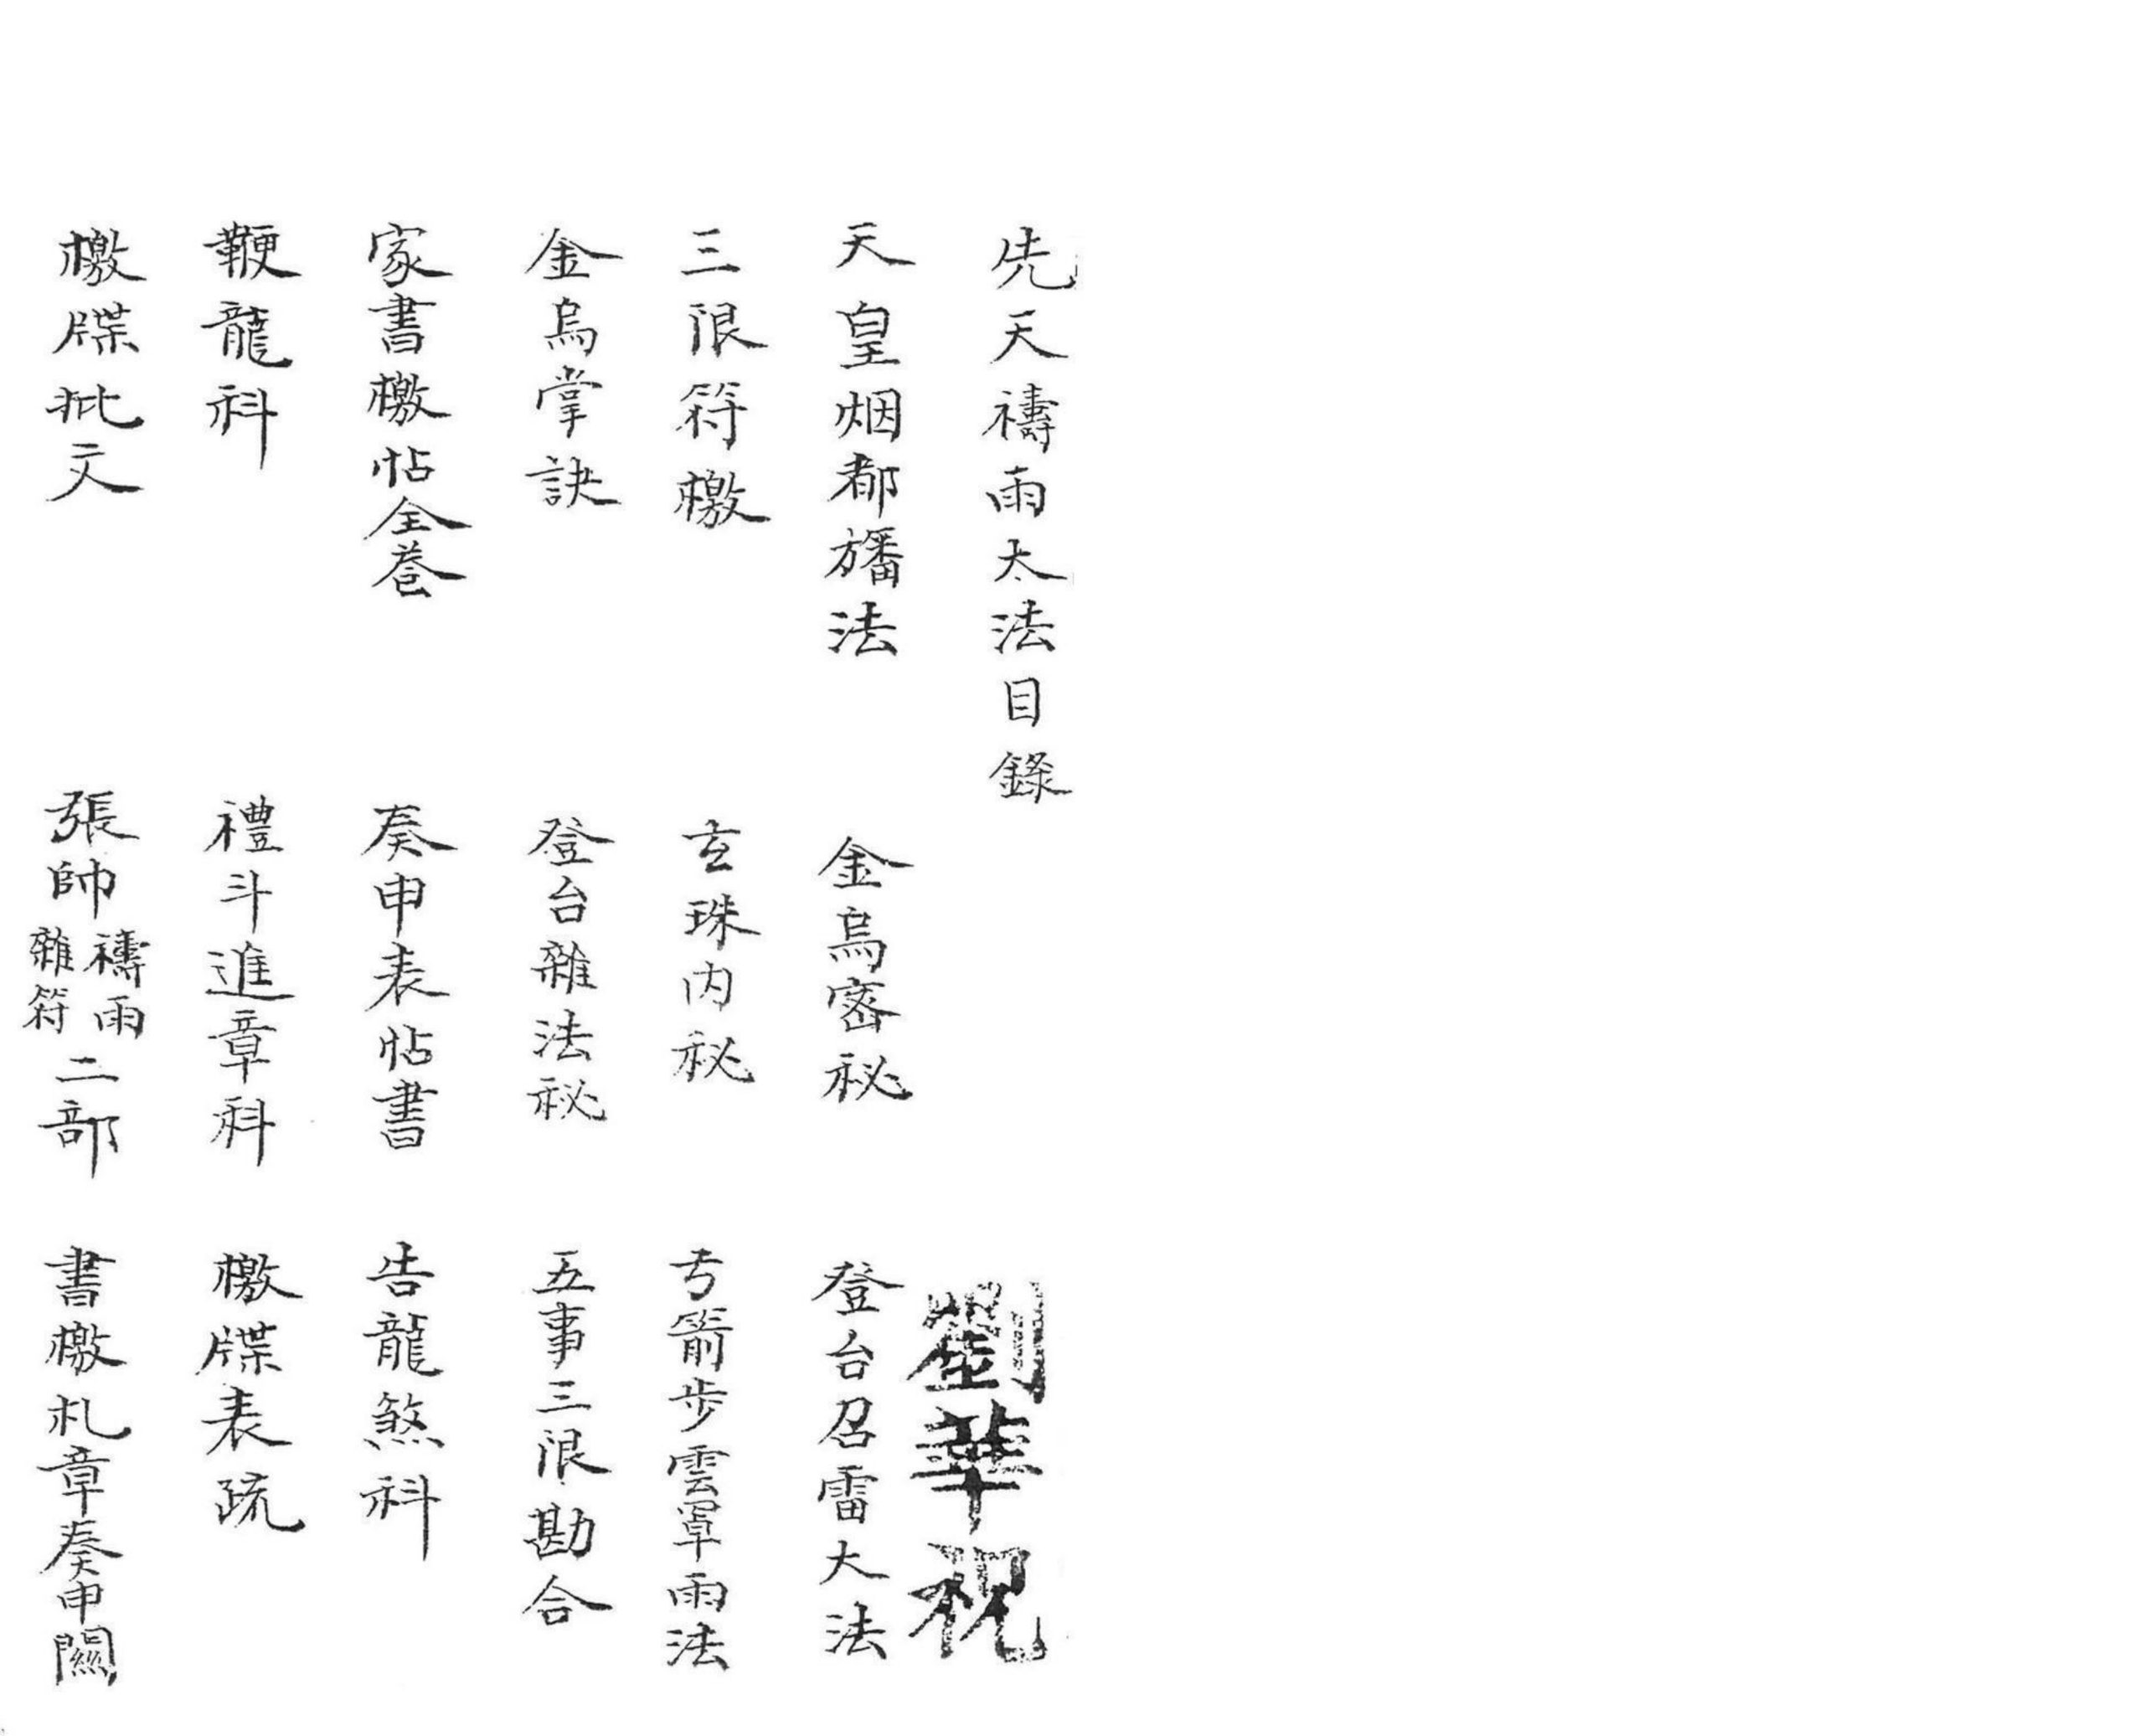 先天禱雨太法目錄
劉華祝
天皇烟都旛法　金烏密秘　登台召雷大法
三限符檄　玄珠内秘　弓箭步雲罩雨法
金烏掌訣　登台雜法秘　五事三限勘合
家書檄帖全卷　奏申表帖書　告龍煞科
鞭龍科　禮斗進章科　檄牒表疏
檄牒批文　張帥禱雨雜符二部　書檄札章奏申關